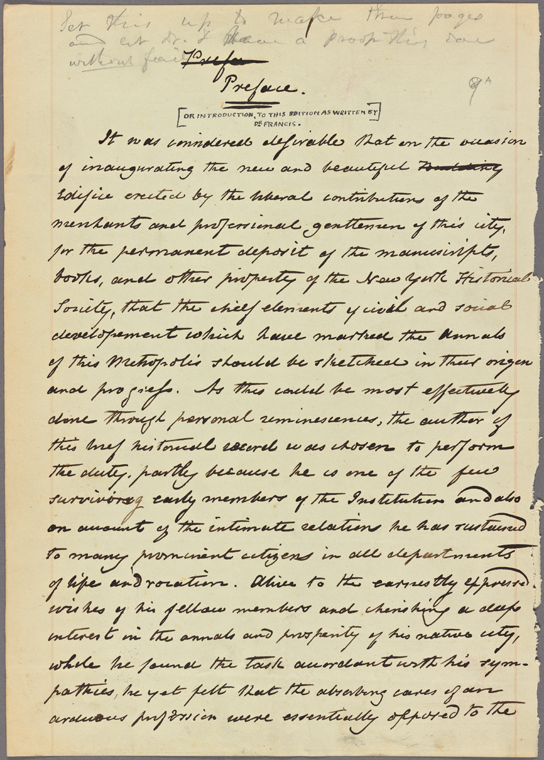 Set this up to make three pages
and let Dr. F have a proof this done
without fail
Prefa
Preface.
9A
[OR INTRODUCTION, TO THIS EDITION AS WRITTEN BY
DR FRANCIS.]
It was considered desirable that on the occasion
of inaugurating the new and beautiful Building
Edifice erected by the liberal contributions of the
merchants and professional gentlemen of this city,
for the permanent deposit of the manuscripts,
books, and other property of the New York Historical
Society, that the chief elements of civil and social
developement which have marked the annals
of this Metropolis should be sketched in their origin
and progress. As this could be most effectively
done through personal reminiscences, the author of
this brief historical record was chosen to perform
the duty, partly because he is one of the few
surviving early members of the Institution and also
on account of the intimate relations he has sustained
to many prominent citizens in all departments
of life and vocation. Alive to the earnestly expressed
wishes of his fellow members and cherishing a deep
interest in the annals and prosperity of his native city,
while he found the task accordant with his sym-
pathies, he yet felt that the absorbing cares of an
arduous profession were essentially opposed to the